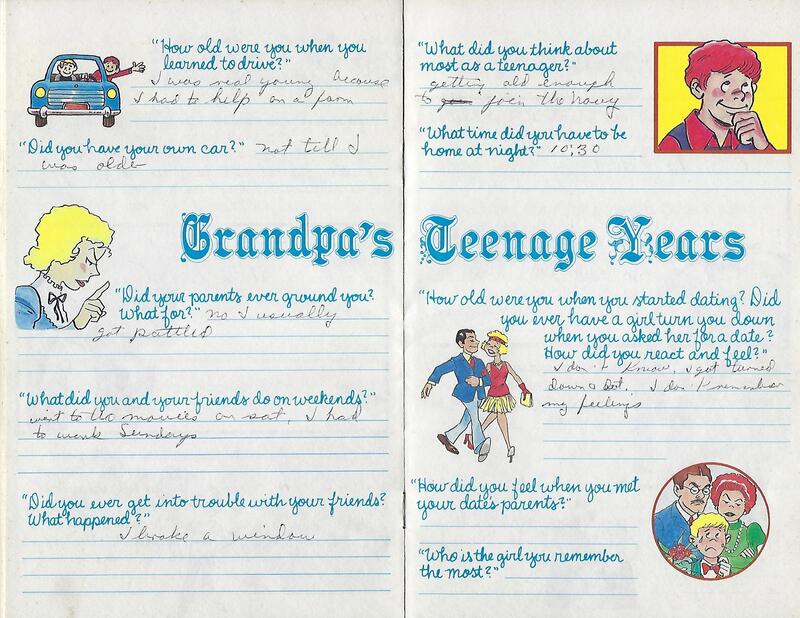 "How old were you when you
learned to drive?"
I was real young because
I had to help on a farm
"Did you have your own car?" not till I
was older
Grandpa's Teenage Years
"Did your parents ever ground you?
What for?" no I usually
got pattled
"What did you and your friends do on weekends?"
went to the movies on sat, I had
to work Sundays
"Did you ever get into trouble with your friends?
What happened?"
I broke a window
"What did you think about
most as a teenager?"
getting old enough
to join the navy
"What time did you have to be
home at night?" 10:30
"How old were you when you started dating? Did
you ever have a girl turn you down
when you asked her for a date?
How did you react and feel?"
I don't know, I got turned
down a lot, I don't remember
my feelings
"How did you feel when you met
your date's parents?"
"Who is the girl you remember
the most?"